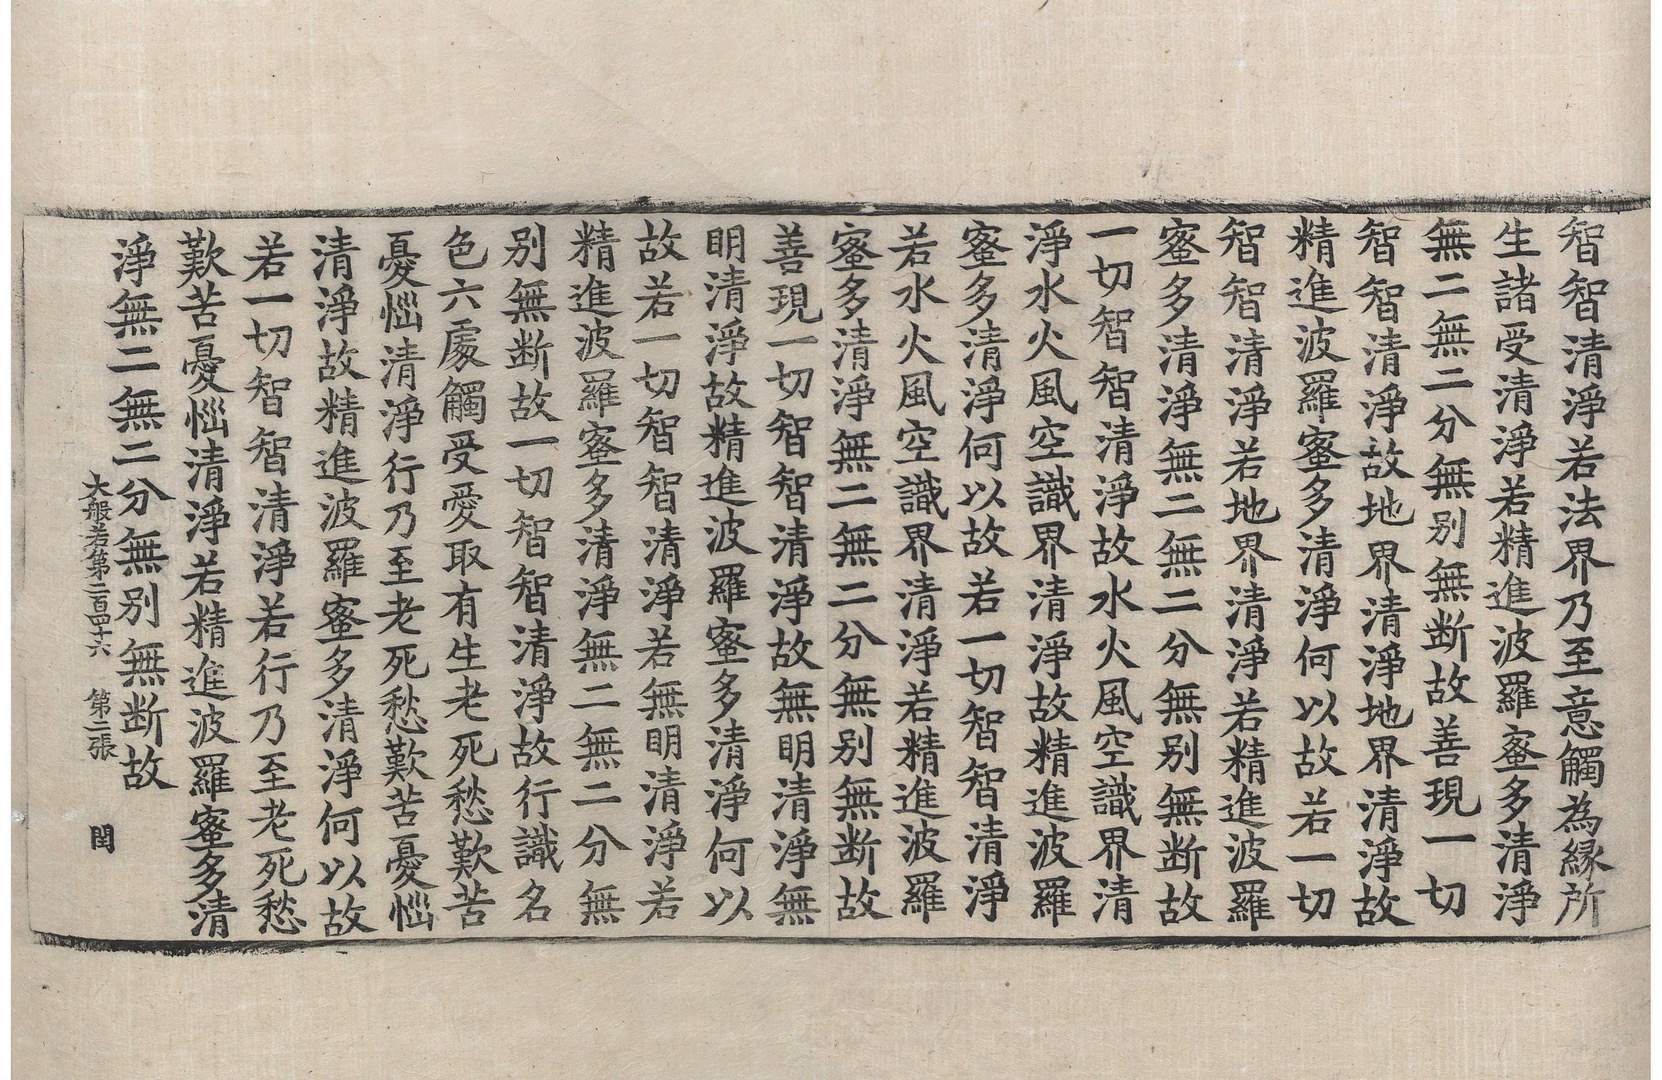 智智清淨若法界乃至意觸為緣所
生諸受清淨若精進波羅蜜多清淨
無二無二分無别無断故善現一切
智智清淨故地界清淨地界清淨故
精進波羅蜜多清淨何以故若一切
智智清淨若地界清淨若精進波羅
蜜多清淨無二無二分無别無断故
一切智智清淨故水火風空識界清
淨水火風空識界清淨故精進波羅
蜜多清淨何以故若一切智智清淨
若水火風空識界清淨若精進波羅
蜜多清淨無二無二分無别無断故
善現一切智智清淨故無明清淨無
明清淨故精進波羅蜜多清淨何以
故若一切智智清淨若無明清淨若
精進波羅蜜多清淨無二無二分無
别無断故一切智智清淨故行識名
色六處觸受愛取有生老死愁歎苦
憂惱清淨行乃至老死愁歎苦憂惱
清淨故精進波羅蜜多清淨何以故
若一切智智清淨若行乃至老死愁
歎苦憂惱清淨若精進波羅蜜多清
淨無二無二分無别無断故
大般若第二百四十六 第二張 閏